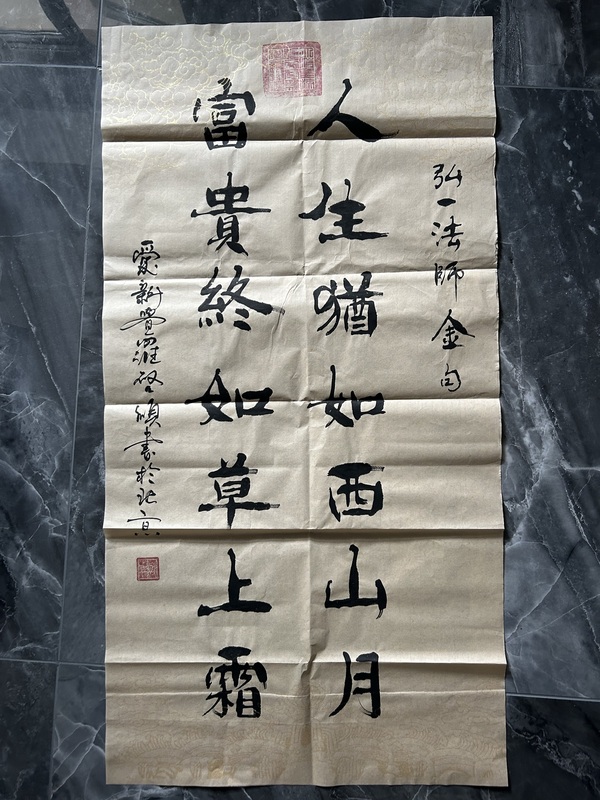 弘一法師金句
人生猶如西山月
富貴終如草上霜
愛新覺羅啟碩書於北京